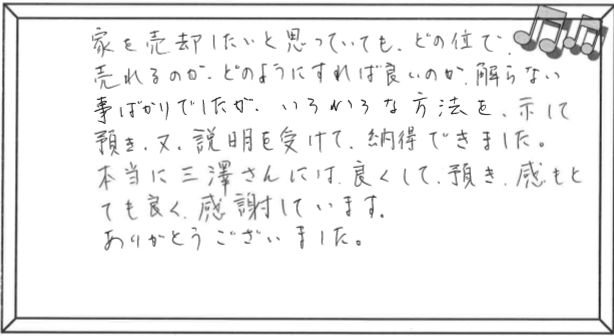 家を売却したいと思っていても、どの位で、
売れるのか、どのようにすれば良いのか、解らない
事ばかりでしたが、いろいろな方法を、示して
預き、又、説明を受けて、納得できました。
本当に三澤さんには、良くして、預き、感もと
ても良く、感謝しています。
ありがとうございました。